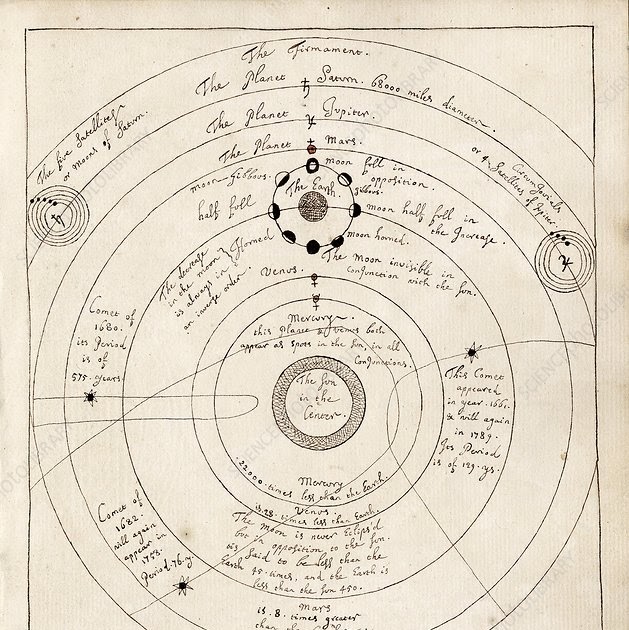 The Firmament.
The Planet ♄ Saturn. 68000 miles diameter.
The Planet ♃ Jupiter.
The Planet ♂ Mars.
The five Satellites
or Moons of Saturn.
♄
or 4 Circumjovials
Satellites of Jupiter.
♃
moon full in
opposition.
moon Gibbous.
Gibbous.
The Earth.
half full
moon half full in
the Increase.
Horned
moon horned.
The decrease
in the moon
is always in
an inverse order.
The Moon invisible in
Conjunction with the Sun.
Venus. ♀
☿
Mercury.
this Planet & Venus both
appear as Spots in the Sun, in all
Conjunctions.
Comet of
1680.
its Period
is of
575. years
The Sun
in the
Center.
This Comet
appeared
in year. 1661.
& will again
in 1789.
Its Period
is of 129. ys.
Mercury
22000 times less than the Earth.
Venus.
is 28. times less than Earth.
The moon is never Eclips'd
but in opposition to the Sun.
is Said to be less than the
Earth 45. times, and the Earth is
less than the Sun 450.
Comet of
1682.
will again
appear in
1758.
Period. 76. y.
Mars
is. 8. times greater
than the
SCIENCE PHOTO LIBRARY